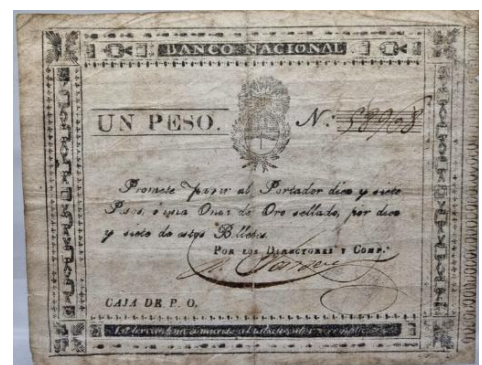 BANCO NACIONAL
UN PESO. N: 58968
Promete pagar al Portador diez y siete
Pesos, ó una Onza de Oro sellado, por diez
y siete de estos Billetes.
POR LOS DIRECTORES Y COMP.ª
CAJA DE P. O.